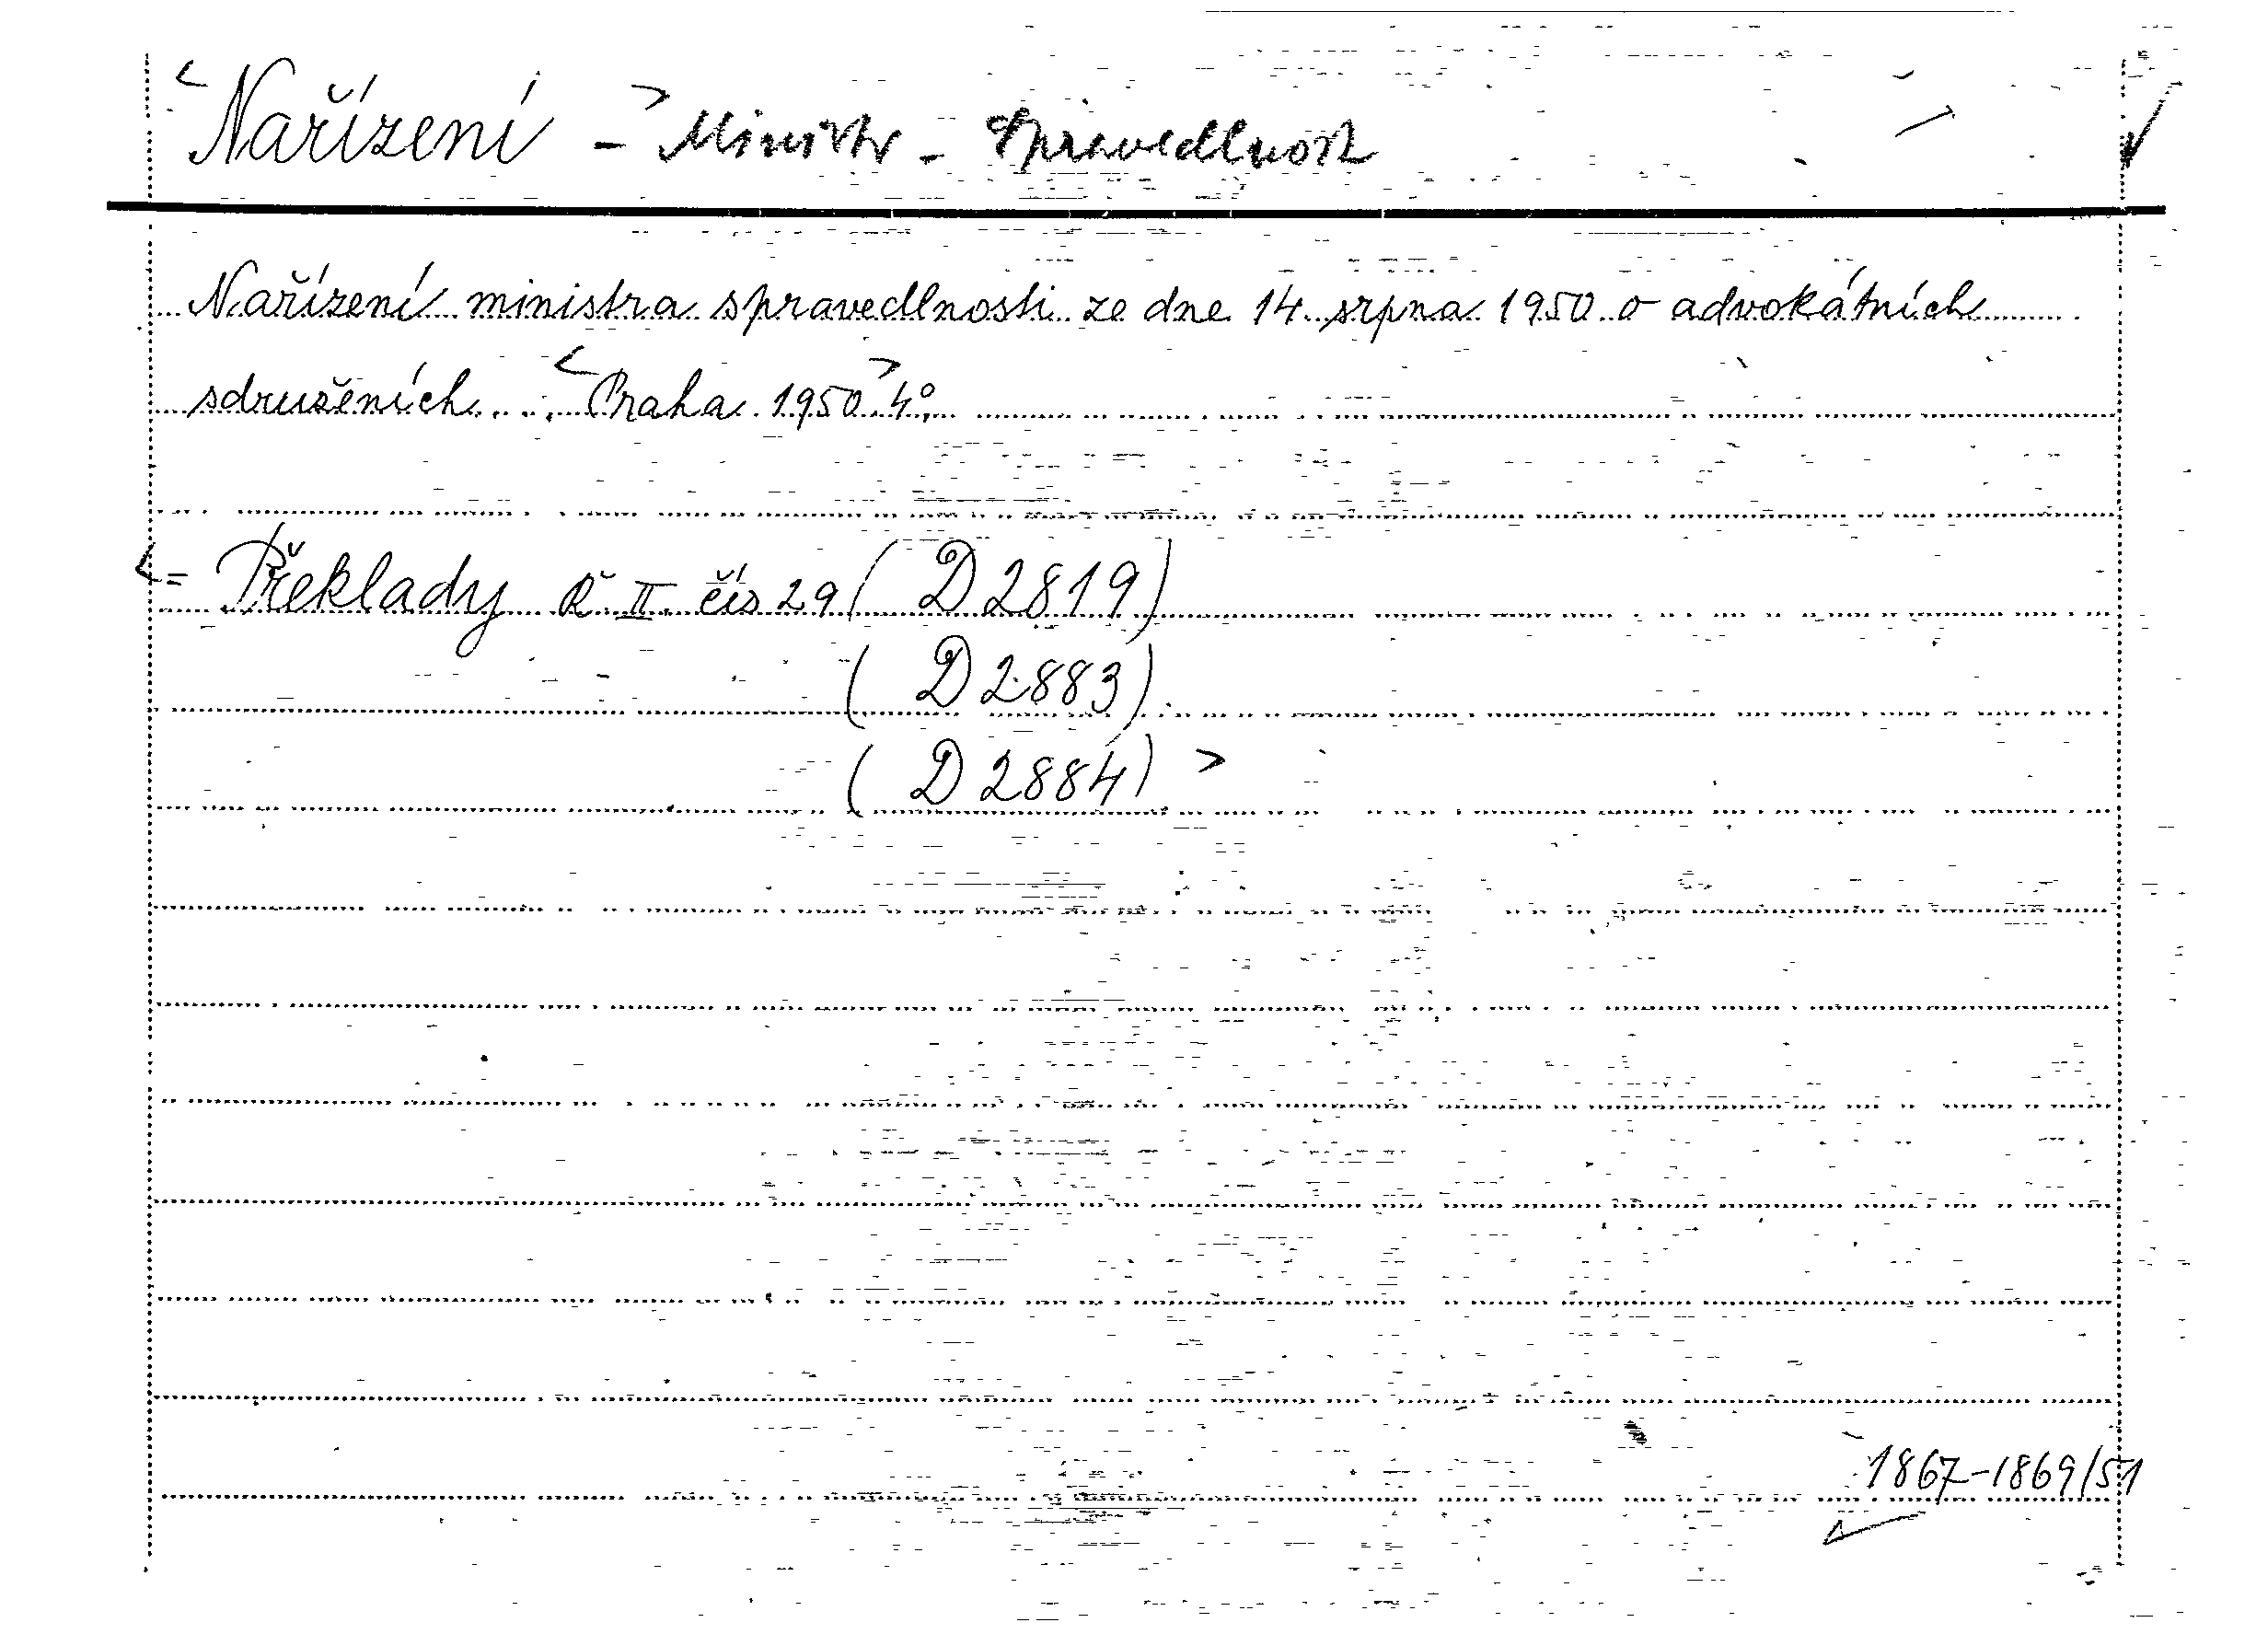 < Nařízení - > Ministr - Spravedlnost
Nařízení ministra spravedlnosti ze dne 14. srpna 1950 o advokátních
sdruženích. . . <Praha 1950> 4°,
<= Překlady Ř. II. čís 29 ( D 2819)
( D 2883)
( D 2884) >
1867-1869/51